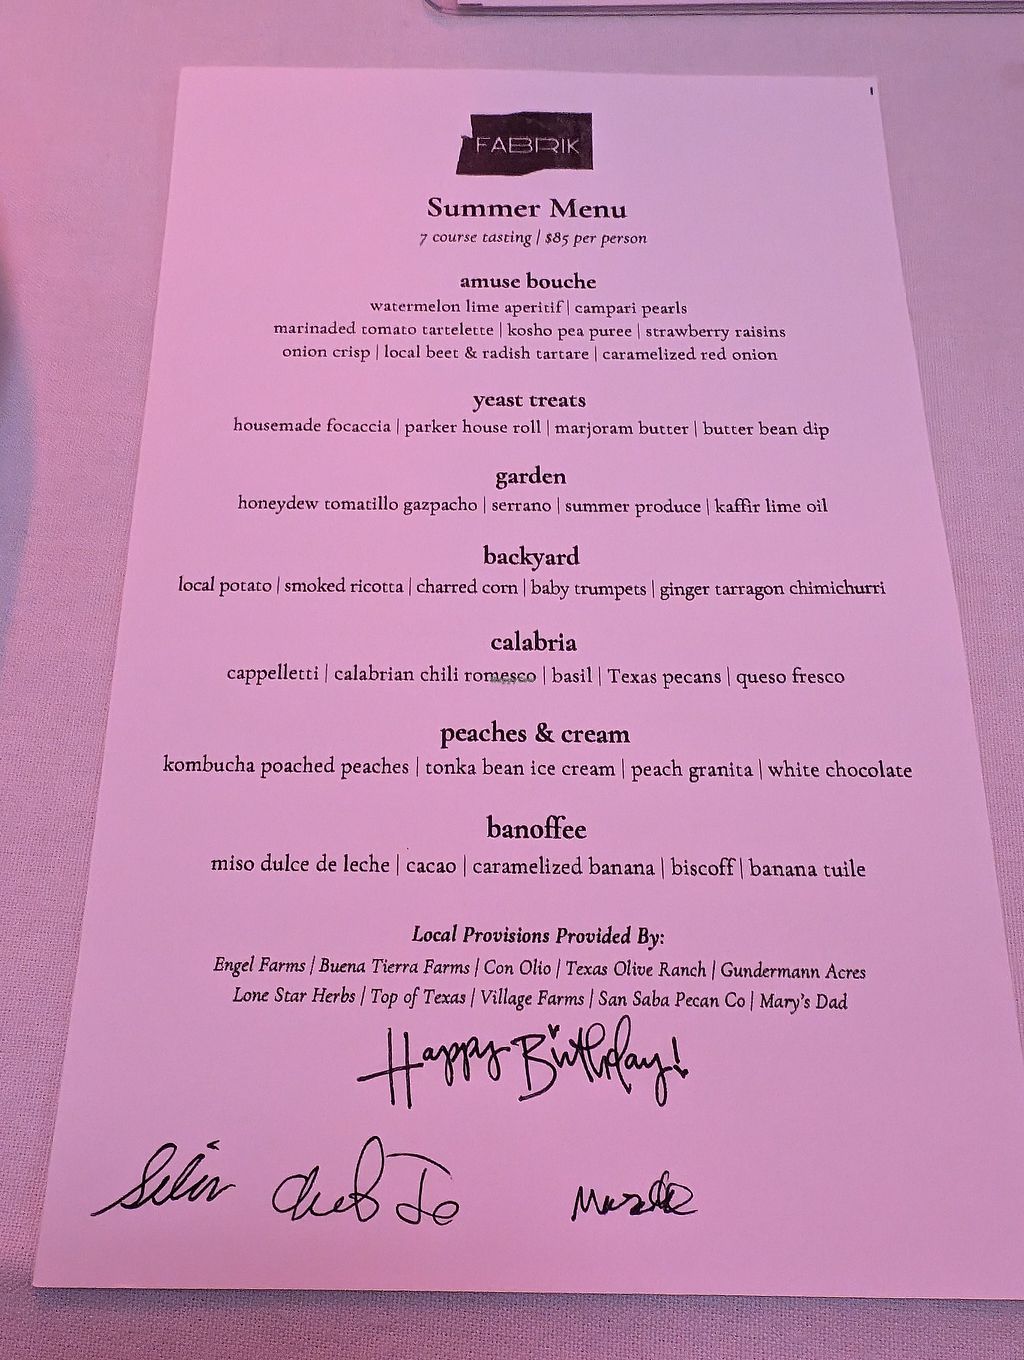 FABRIK
Summer Menu
7 course tasting | $85 per person
amuse bouche
watermelon lime aperitif | campari pearls
marinaded tomato tartelette | kosho pea puree | strawberry raisins
onion crisp | local beet & radish tartare | caramelized red onion
yeast treats
housemade focaccia | parker house roll | marjoram butter | butter bean dip
garden
honeydew tomatillo gazpacho | serrano | summer produce | kaffir lime oil
backyard
local potato | smoked ricotta | charred corn | baby trumpets | ginger tarragon chimichurri
calabria
cappelletti | calabrian chili romesco | basil | Texas pecans | queso fresco
peaches & cream
kombucha poached peaches | tonka bean ice cream | peach granita | white chocolate
banoffee
miso dulce de leche | cacao | caramelized banana | biscoff | banana tuile
Local Provisions Provided By:
Engel Farms | Buena Tierra Farms | Con Olio | Texas Olive Ranch | Gundermann Acres
Lone Star Herbs | Top of Texas | Village Farms | San Saba Pecan Co | Mary's Dad
Happy Birthday!
Chef Je